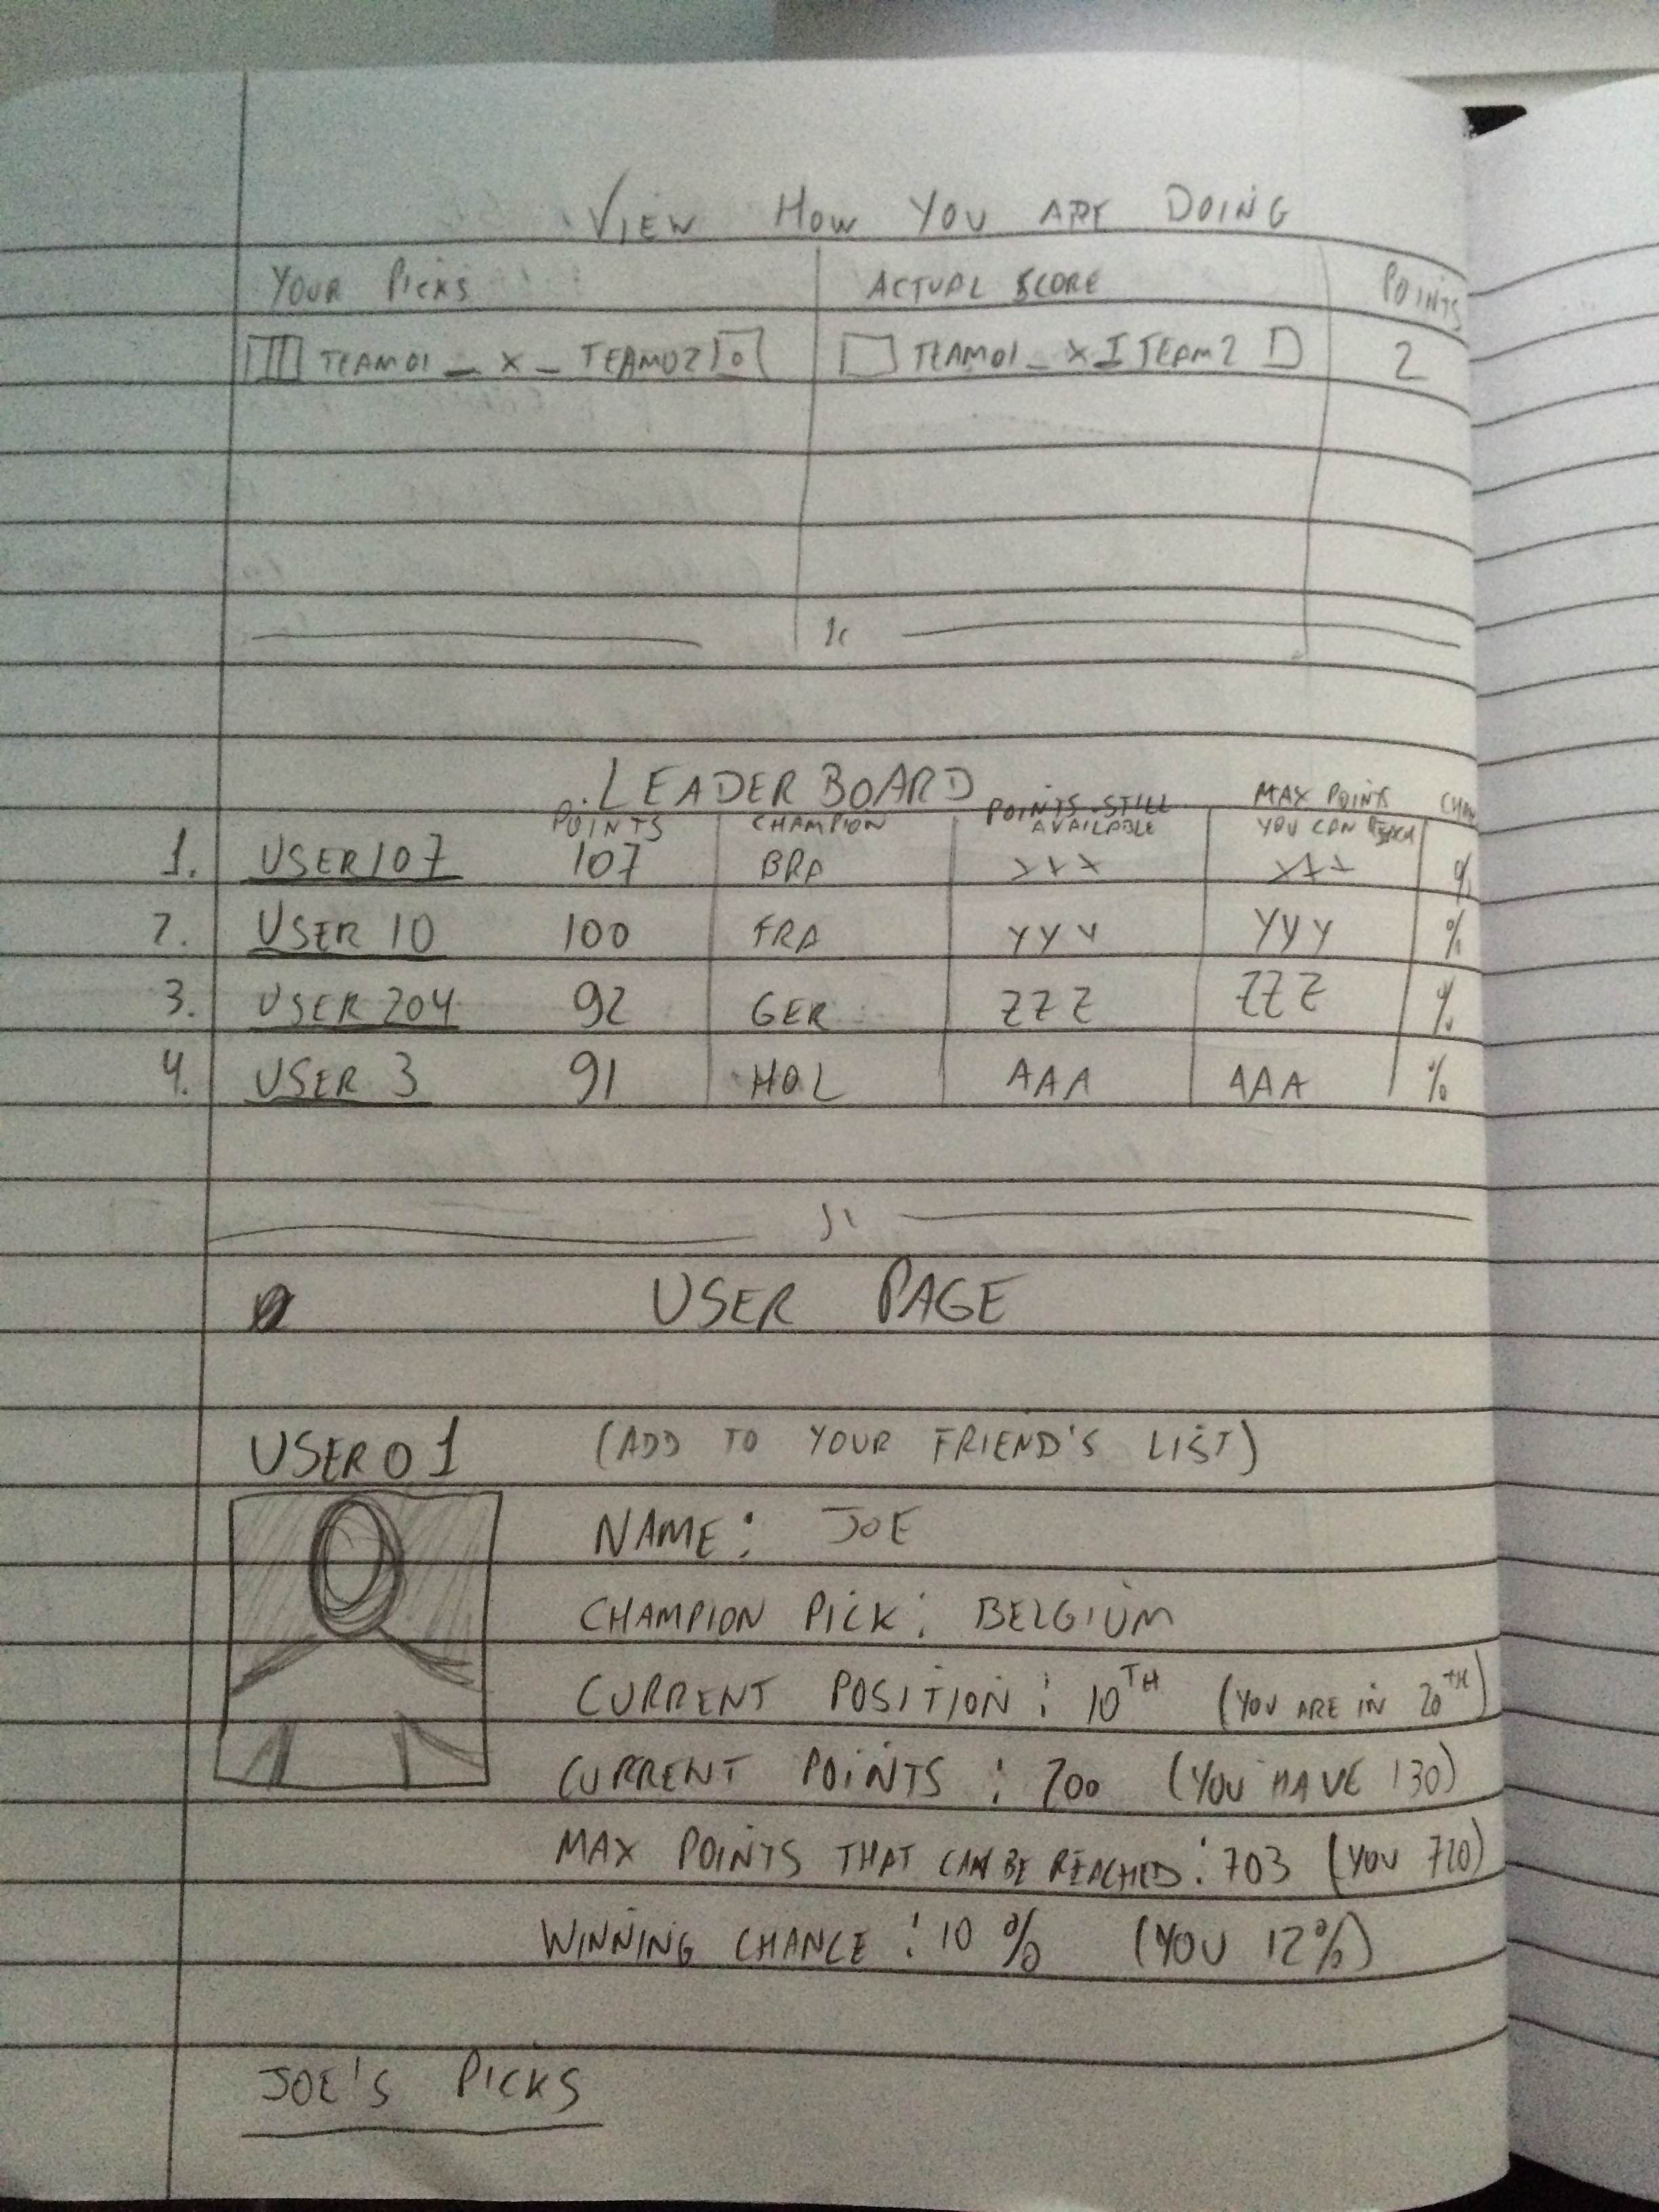 VIEW HOW YOU ARE DOING
YOUR PICKS ACTUAL SCORE POINTS
TEAM01 _ X _ TEAM02 TEAM01 _ X I TEAM2 2
LEADER BOARD
POINTS CHAMPION POINTS STILL AVAILABLE MAX POINTS YOU CAN
1. USER107 107 BRA XXX XXX %
2. USER 10 100 FRA YYY YYY %
3. USER 204 92 GER ZZZ ZZZ %
4. USER 3 91 HOL AAA AAA %
USER PAGE
USER01 (ADD TO YOUR FRIEND'S LIST)
NAME: JOE
CHAMPION PICK: BELGIUM
CURRENT POSITION: 10TH (YOU ARE IN 20TH)
CURRENT POINTS: 200 (YOU HAVE 130)
MAX POINTS THAT CAN BE REACHED: 703 (YOU 720)
WINNING CHANCE: 10% (YOU 12%)
JOE'S PICKS